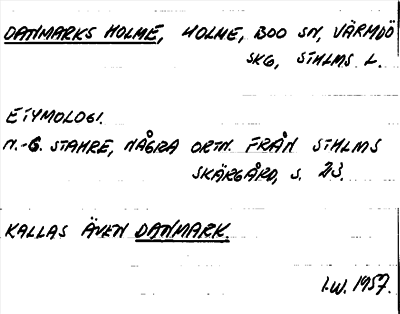 DANMARKS HOLME, HOLME, BOO SN, VÄRMDÖ
SKG, STHLMS L.
ETYMOLOGI.
N.-G. STAHRE, NÅGRA ORTN. FRÅN STHLMS
SKÄRGÅRD, S. 23.
KALLAS ÄVEN DANMARK.
I.W. 1957.